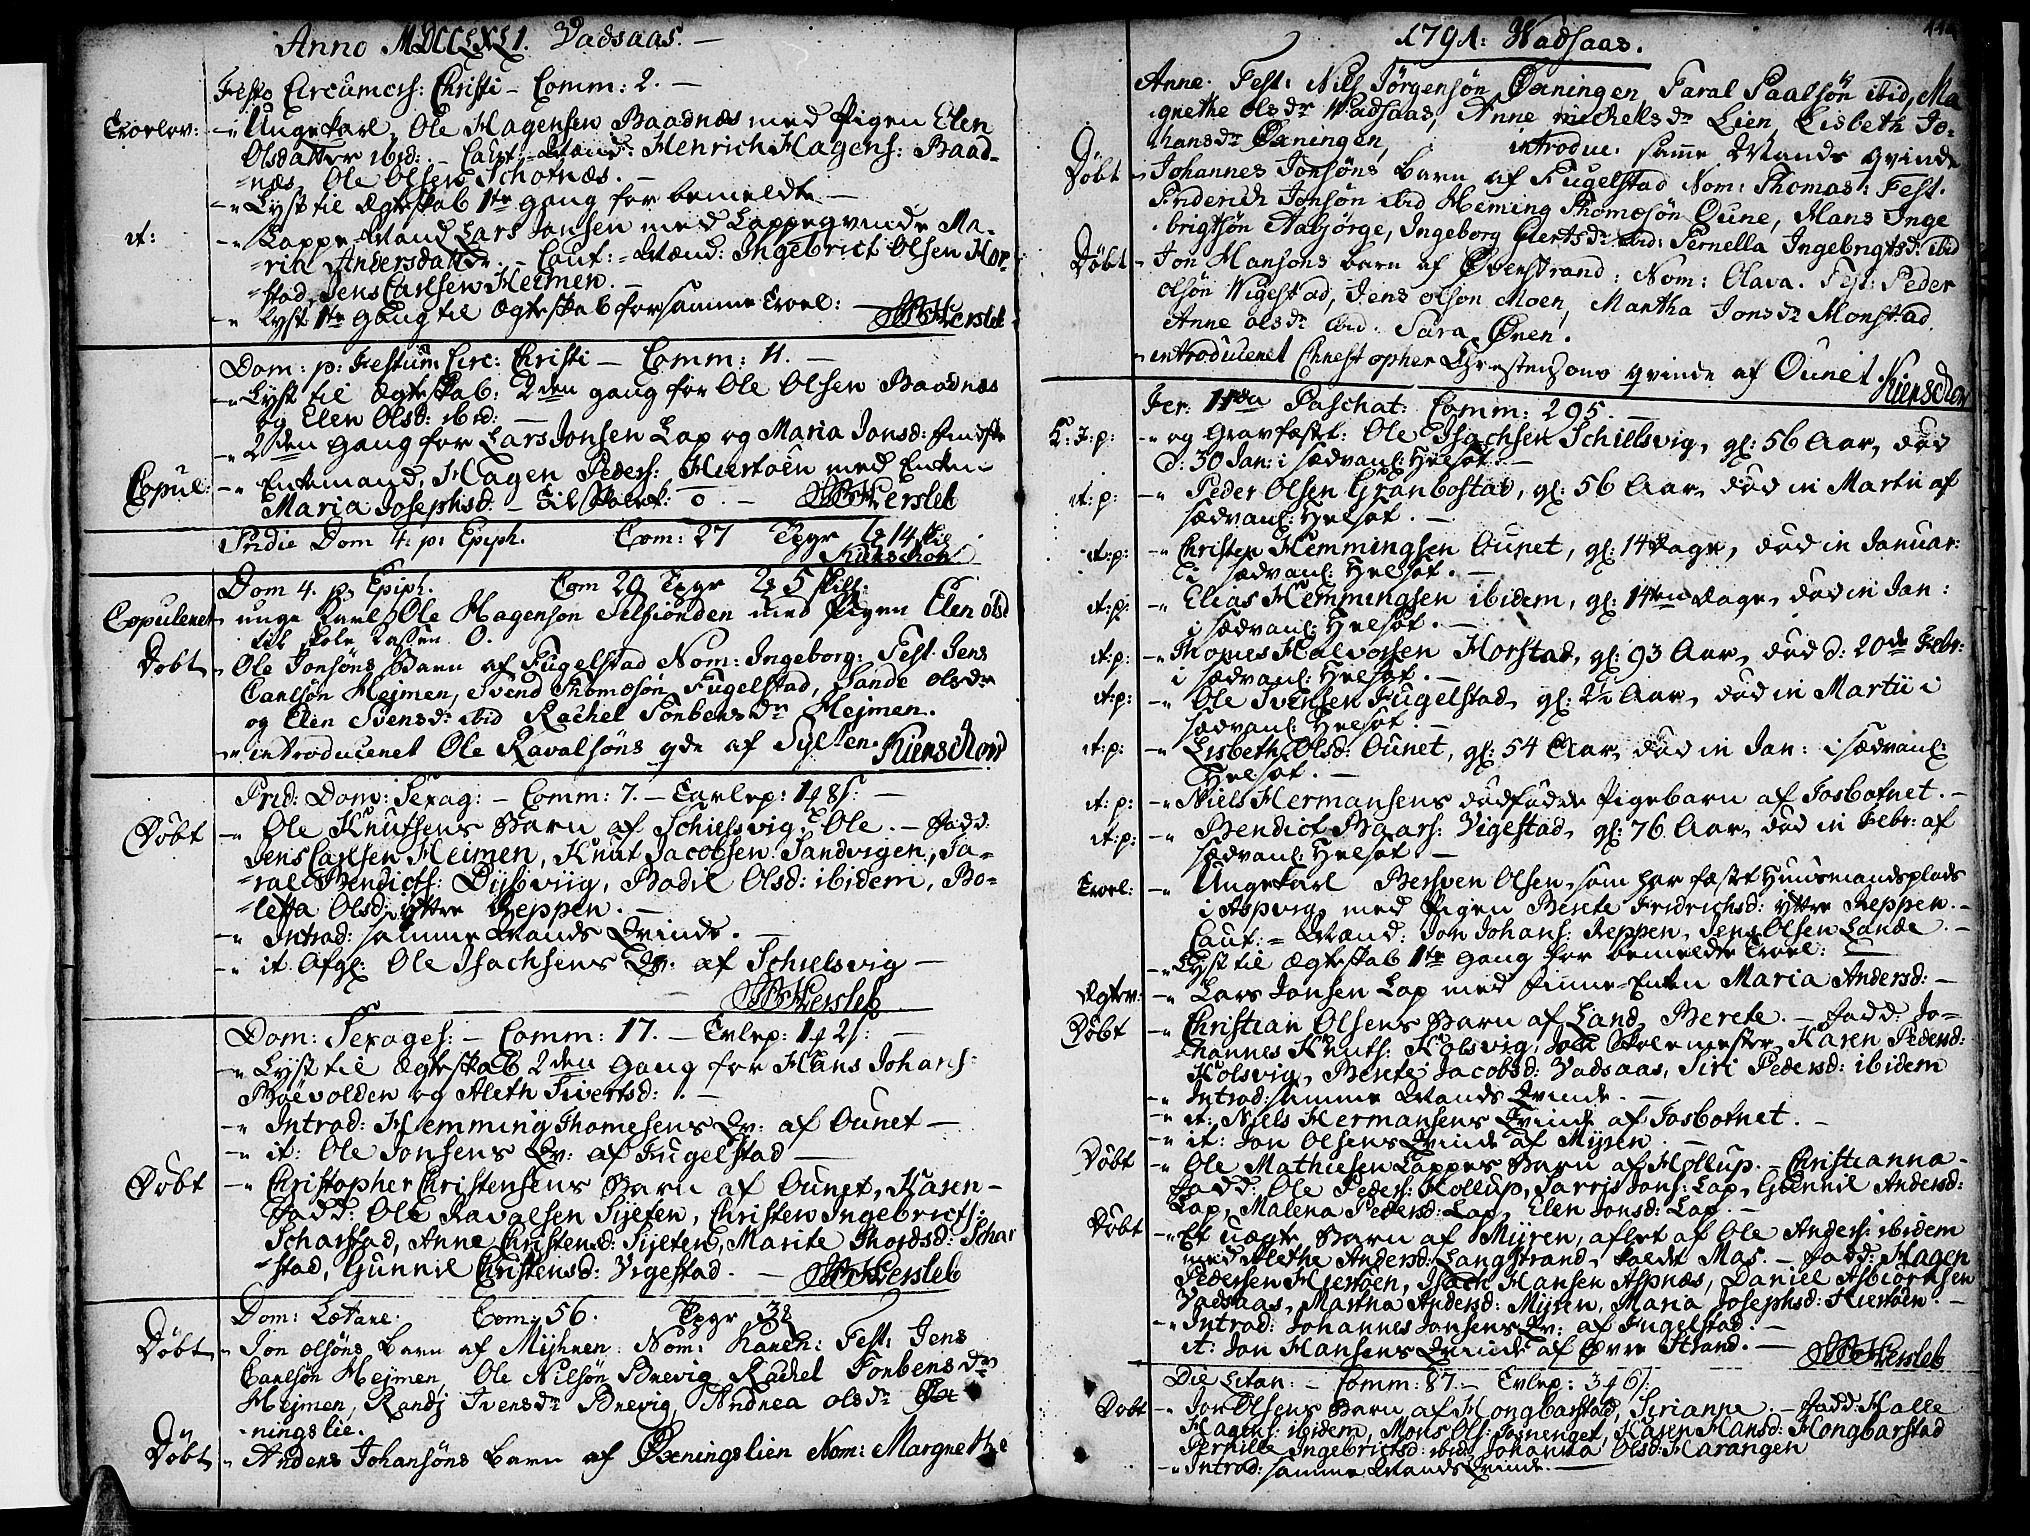 Anno MDCCLXLI. Vadsaas. —
Festo Circumcis: Christi – Comm: 2. —
Troelov: -"- Ungekarl, Ole Hagensen Baadnæs med Pigen Elen
Olsdatter ibid: – Caut:-Mænd: Henrich Hagens: Baad-
næs, Ole Olsen Schotnæs. —
-"- Lyst til Ægteskab 1te gang for bemeldte —
it: -"- Lappe-Mand Lars Jonsen med Lappeqvinde Ma-
ria Andersdattr. – Caut:-Mænd: Ingebrict Olsen Hor-
stad, Jens Carlsen Heimen. —
-"- Lyst 1te Gang til Ægteskab for samme Troel: — Hersleb
Dom: p: Festum Circ: Christi – Comm: 11. —
-"- Lyst til Ægteskab 2den gang for Ole Olsen Baadnæs
og Elen Olsd: ibid: —
-"- 2den Gang for Lars Jonsen Lap og Maria Jonsd:
Copul: -"- Enkemand, Hagen Peders: Hiertøen med Enken
Maria Josephsd. – Til Skolek: 0 – Hersleb
Pridie Dom 4. p: Epiph. Com: 27 Tpgr 14
Dom 4. p. Epiph. Com 20 Tpgr 2 5 skill:
Copuleret unge Karl Ole Hagensøn Selfionden med Pigen Elen olsd
til skole Cassen 0.
Døbt - Ole Jonsøns Barn af Fugelstad Nom: Ingeborg: Test. Jens
Carlsøn Hejmen, Svend Thomesøn Fugelstad, Sande olsdr
og Elen Svensdr ibid Rachel Torbensdr Hejmen.
-"- introduceret Ole Ravalsøns qde af Sylten.
Prid: Dom: Sexag: – Comm: 7. – Tavlep: 1 8 s: —
Døbt -"- Ole Knutsens Barn af Schielsvig, Ole. – Fadd:
Jens Carlsen Heimen, Knut Jacobsen Sandvigen, Ta-
ral Bendicts: Dysviig, Bodil Olsd: ibidem, Bo-
letta Olsd: yttre Reppen. —
-"- Introd: samme Mands Qvinde. —
-"- it. Afgl: Ole Isachsens Qv: af Schielsvig —
Hersleb
Dom: Sexages: – Comm: 17. – Tvlep: 1 2 s: —
-"- Lyst til Ægteskab 2den Gang for Hans Johans:
Bøevolden og Aleth Sivertsd: —
-"- Introd: Hemming Thomesens Qv: af Ounet —
-"- it: Ole Jonsens Qv: af Fugelstad —
Døbt -"- Christopher Christensens Barn af Ounet, Karen –
Fadd: Ole Ravalsen Syeten, Christen Ingebricts:
Scharstad, Anne Christensd: Syeten, Marite Thordsd: Schar
stad, Gunnil Christensd: Vigestad. — Hersleb
Dom: Lætare. Com: 56. Tpgr 3
Døbt - Jon olsøns Barn af Myhren Nom: Karen: Test: Jens
Carlsøn Hejmen, Ole Nilsøn Brevig Rachel Torbensdr
Hejmen, Randj Ivensdr Brevig, Andrea olsdr Øx
ningslie.
Døbt - Anders Johansøns Barn af Øxningslien Nom: Margrethe
1791: Wadsaas.
Anne. Test: Nils Jørgensøn Øxningen, Taral Paalsøn ibid, Ma
grethe olsdr Wadsaas, Anne michelsdr Lien, Lisbeth Jo-
hansdr Øxningen, introduc: samme Mands qvinde
Døbt - Johannes Jonsøns Barn af Fugelstad Nom: Thomas: Test.
Friderich Jonsøn ibid Heming Thomesøn Oune, Hans Inge
brigtsøn Aabjørge, Ingeborg Giertsdr ibid: Pernella Ingebrigtsdr ibid
Døbt - Jon Hansøns Barn af Øverstrand: Nom: Olava. Test: Peder
olsøn Wigestad, Jens olsøn Moen, Martha Jonsdr Monstad
Anne olsdr ibid. Sara Øren.
- introduceret Christopher Christensøns qvinde af Ounet
Fer: IIda Paschat: Comm: 295. —
T: J: p: -"- og Gravfæst: Ole Isachsen Schielsvig, gl: 56 Aar, død
d: 30 Jan: i sædvanl: Helsot. —
it: p: -"- Peder Olsen Granbostad, gl: 56 Aar, død in Martii af
sædvanl: Helsot. —
it: p: -"- Christen Hemmingsen Ounet, gl: 14 Dage, død in Januar:
i sædvanl: Helsot. —
it: p: -"- Elias Hemmingsen ibidem, gl: 14 Dage, død in Jan:
i sædvanl: Helsot. —
it: p: -"- Thomes Halvorsen Horstad, gl: 93 Aar, død d: 20de Febr:
i sædvanl: Helsot. —
it: p: -"- Ole Svensen Fugelstad, gl: 2½ Aar, død in Martii i
sædvanl: Helsot —
it: p: -"- Lisbeth Olsd: Ounet, gl: 54 Aar, død in Jan: i sædvanl:
Helsot. —
it: p: -"- Niels Hermansens dødfødde Pigebarn af Josbotnet. –
it: p: -"- Bendict Baars: Vigestad, gl: 76 Aar, død in Febr: af
sædvanl: Helsot —
Troel: -"- Ungekarl Bersven Olsen, som har fæstet Huusmandsplads
i Aspvig, med Pigen Berete Fridrichsd: yttre Reppen. –
Caut:-Mænd: Jon Johans: Reppen, Jens Olsen Lande. –
-"- Lyst til Ægteskab 1te Gang for bemeldte Troel: —
Ægtev: -"- Lars Jonsen Lap med Finne-Enken Maria Andersd: –
Døbt -"- Christian Olsens Barn af Land, Berete. – Fadd: Jo-
hannes Knuts: Kolsvig, Skolemester, Karen Pedersd:
Kolsvig, Berete Jacobsd: Vadsaas, Siri Pedersd: ibidem
-"- Introd: samme Mands Qvinde. —
-"- it: Niels Hermansens Qvinde af Josbotnet. –
-"- it: Jon Olsens Qvinde af Myren —
Døbt -"- Ole Mathiesen Lappes Barn af Hollup. – Christianna –
Fadd: Ole Peders: Hollup, Sarris Jons: Lap, Gunnil Andersd:
Lap, Malena Pedersd: Lap, Elen Jonsd: Lap. —
Døbt -"- Et uægte Barn af Myren, aflet af Ole Anders: ibidem
med Alethe Andersd: Langstrand, kaldt Mas. – Fadd: Hagen
Pedersen Hjertøen, Isach Hansen Aspnæs, Daniel Asbiørnsen
Vadsaas, Martha Andersd: Myren, Maria Josephsd: Hiertøen. –
-"- Introd: Johannes Jonsens Qv: af Fugelstad. –
it: Jon Hansens Qvinde af Øvre Strand. – Hersleb
Die Litan: – Comm: 87. – Tvlep: 3 6 s:
Døbt -"- Jon Olsens Barn af Hongbarstad, Sirianne. – Fadd: Halle
Hagens: ibidem, Mons Ols: Rosnenget, Karen Hansd: Hongbarstad
Pernille Ingebrictsd: ibid, Johanna Olsd: Harangen
-"- Introd: samme Mands Qvinde. —